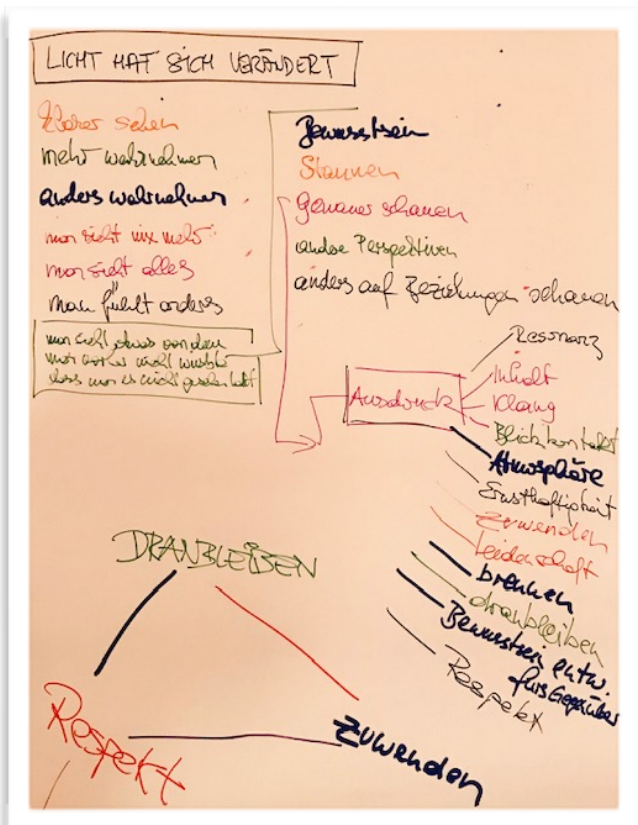 LICHT HAT SICH VERÄNDERT
klarer sehen
mehr wahrnehmen
anders wahrnehmen
man sieht nix mehr
man sieht alles
man fühlt anderes
man sieht etwas von dem
man vorher nicht wusste
dass man es nicht gesehen hat
Bewusstsein
Staunen
Genauer schauen
andere Perspektiven
anders auf Beziehungen schauen
Ausdruck
Resonanz
Inhalt
Klang
Blickkontakt
Atmosphäre
Ernsthaftigkeit
Zuwenden
Leidenschaft
brennen
dranbleiben
Bewusstsein entw.
fürs Gegenüber
Respekt
DRANBLEIBEN
Respekt
Zuwenden